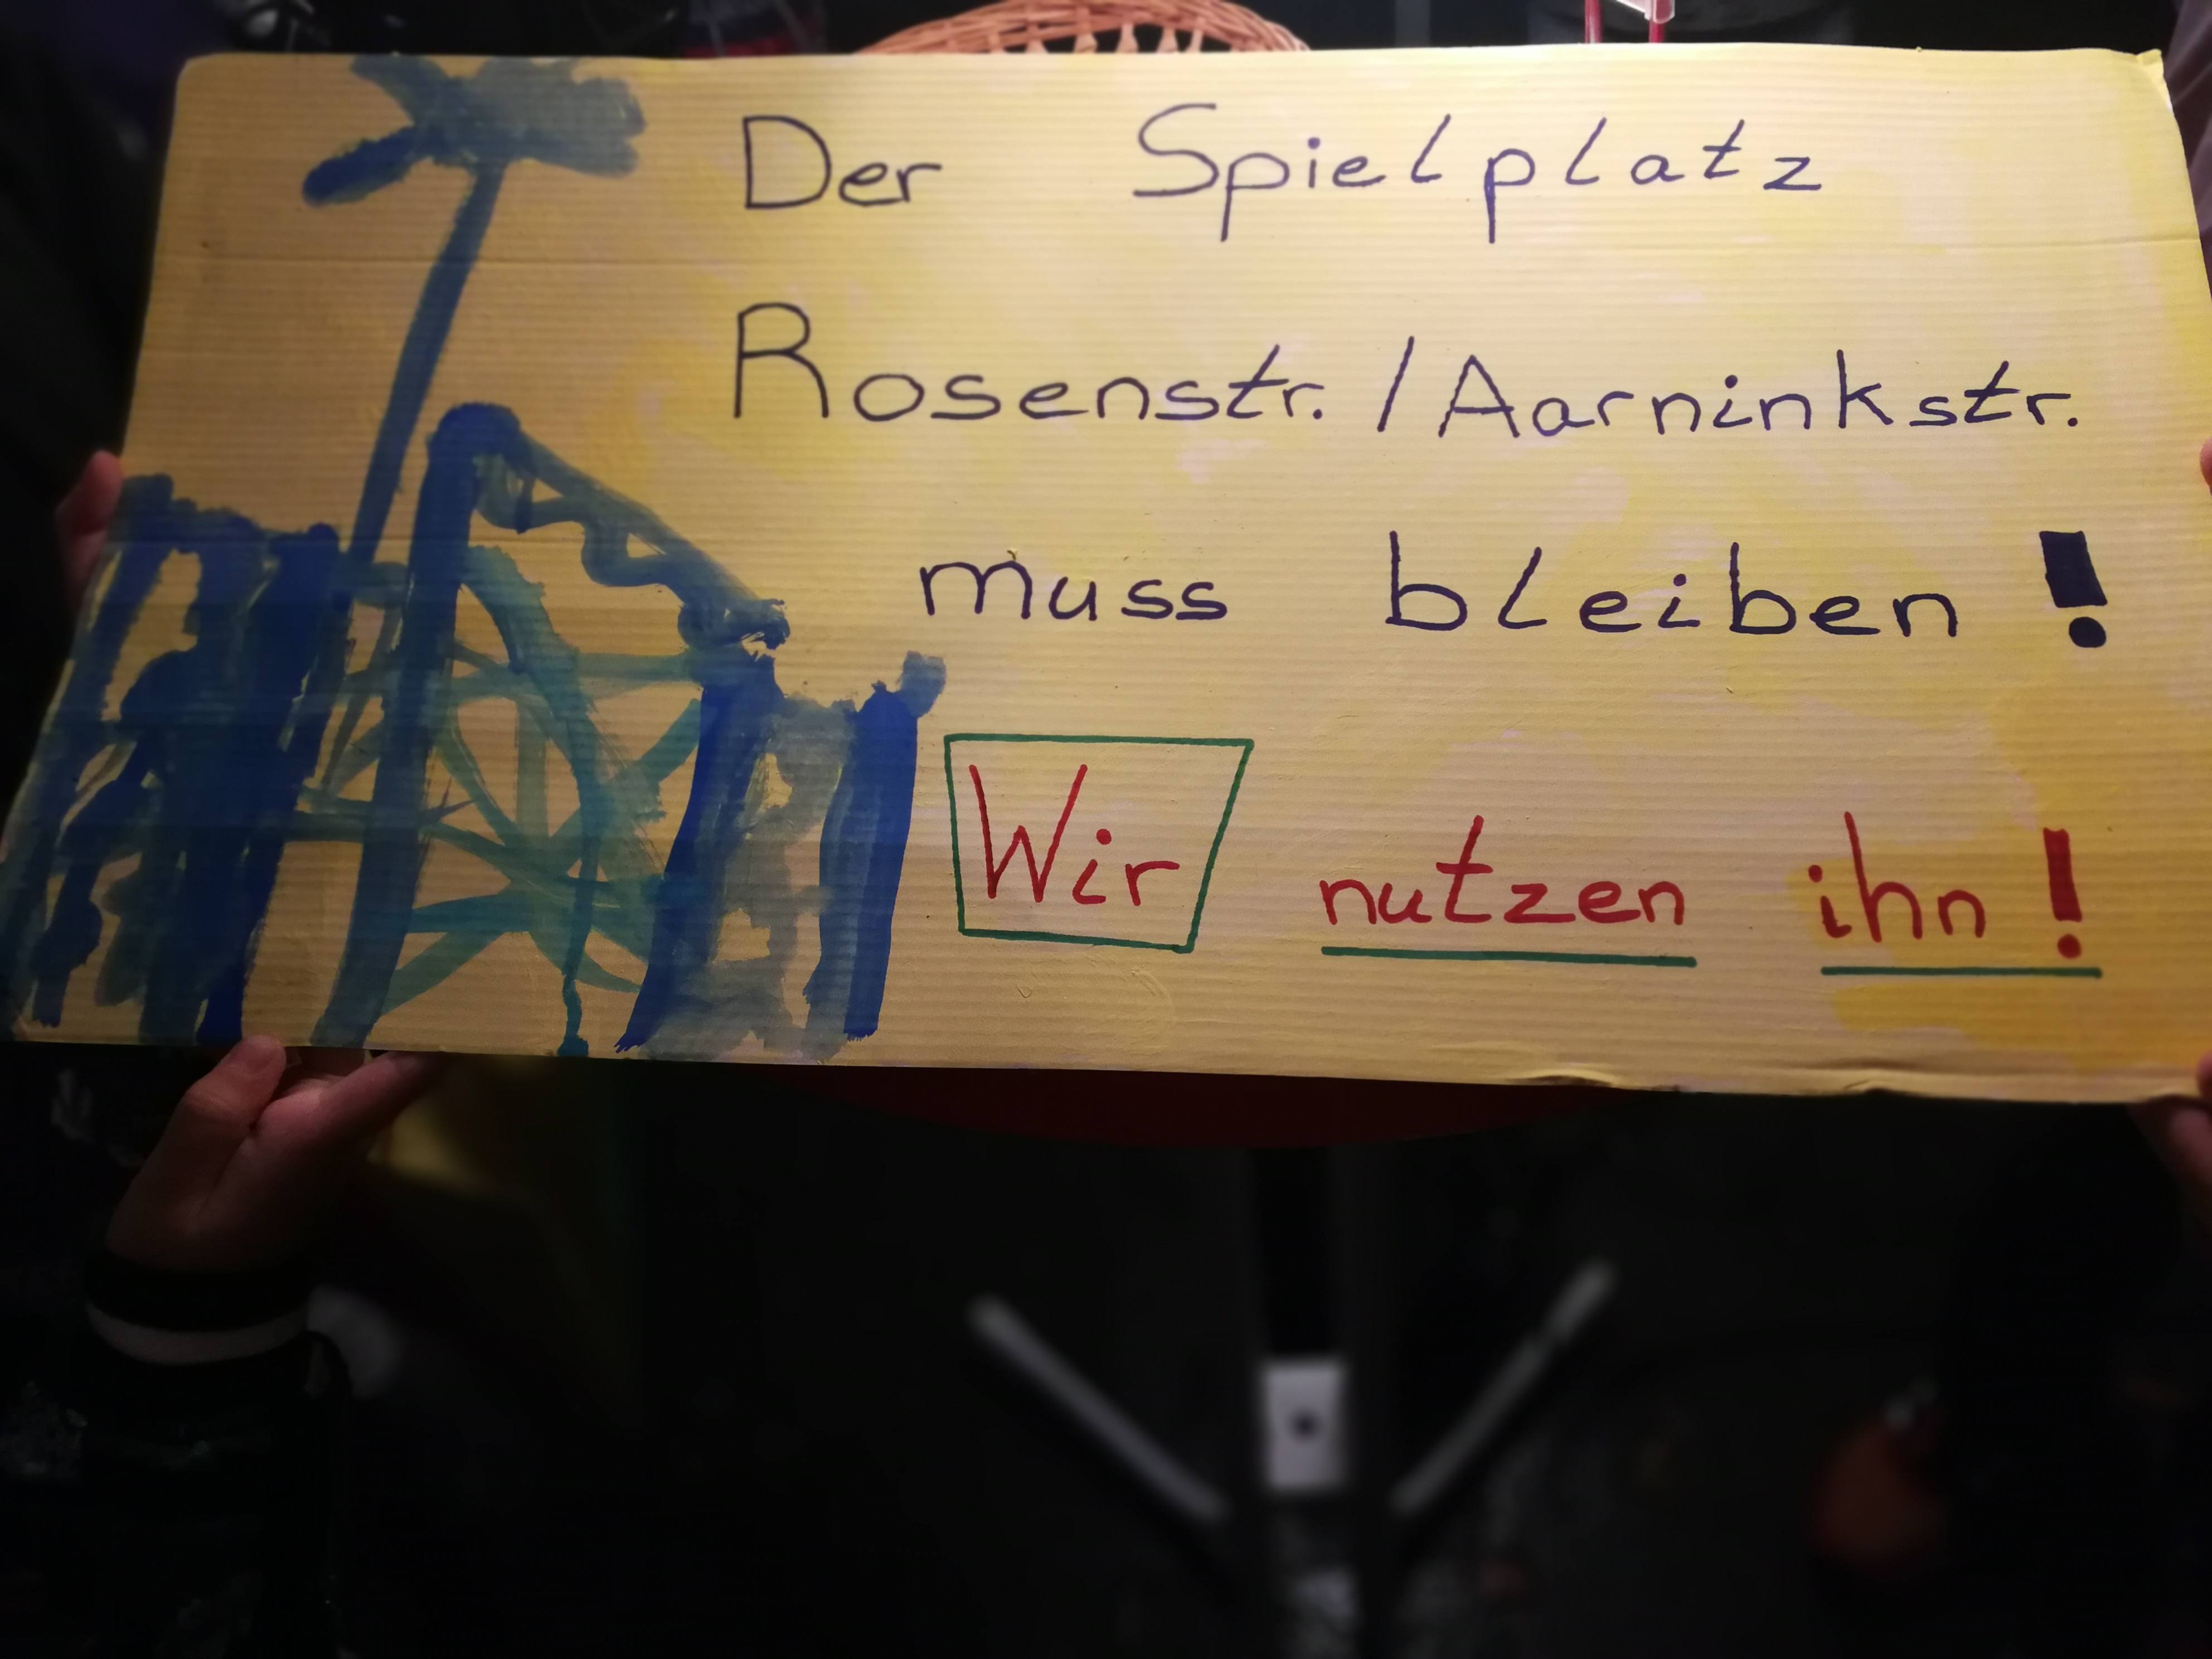 Der Spielplatz
Rosenstr. / Aarninkstr.
muss bleiben!
Wir nutzen ihn!